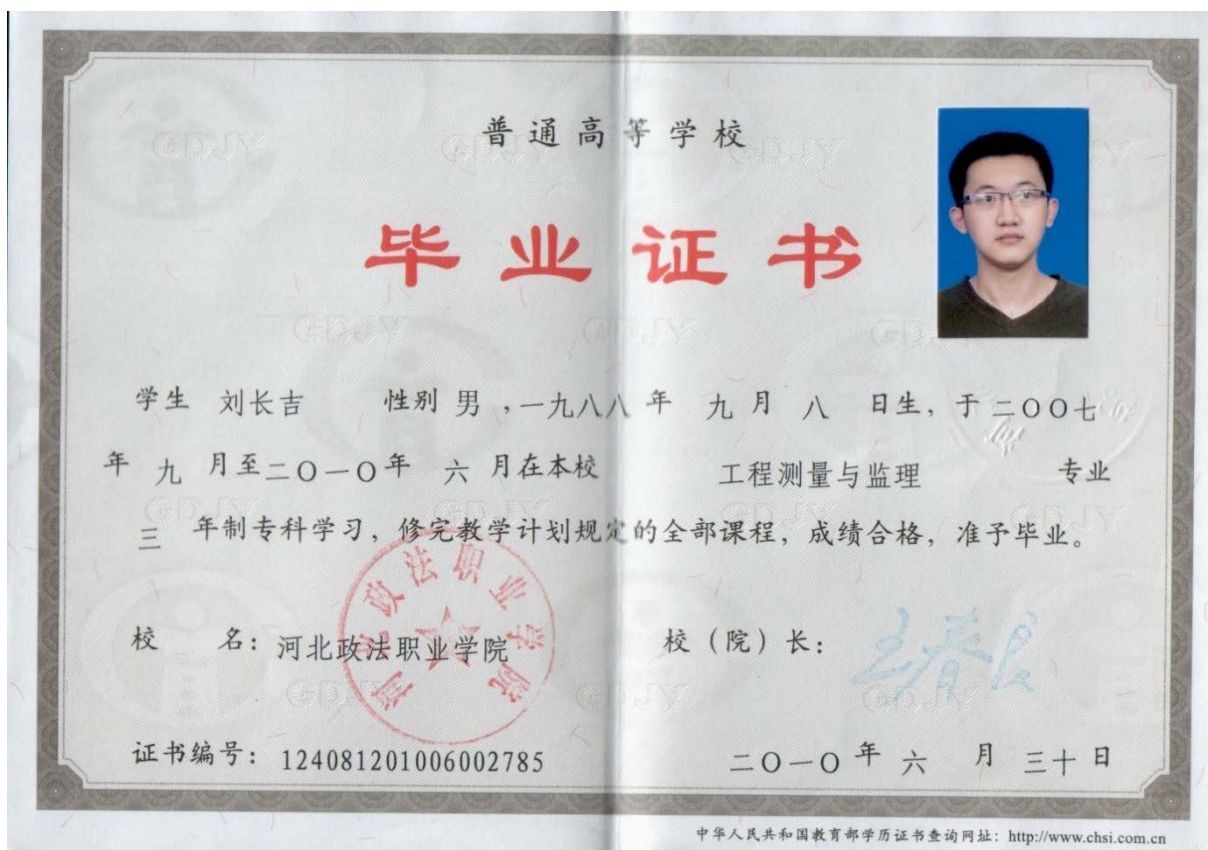 普通高等学校
毕业证书
学生 刘长吉 性别 男 ,一九八八 年 九 月 八 日生, 于 二〇〇七
年 九 月至二〇一〇年 六 月在本校 工程测量与监理 专业
三 年制专科学习, 修完教学计划规定的全部课程, 成绩合格, 准予毕业。
河北政法职业学院
校 名: 河北政法职业学院 校(院)长: 王春良
证书编号: 124081201006002785 二〇一〇 年 六 月 三十 日
中华人民共和国教育部学历证书查询网址: http://www.chsi.com.cn
GDJY
GDJY
GDJY
GDJY
GDJY
GDJY
GDJY